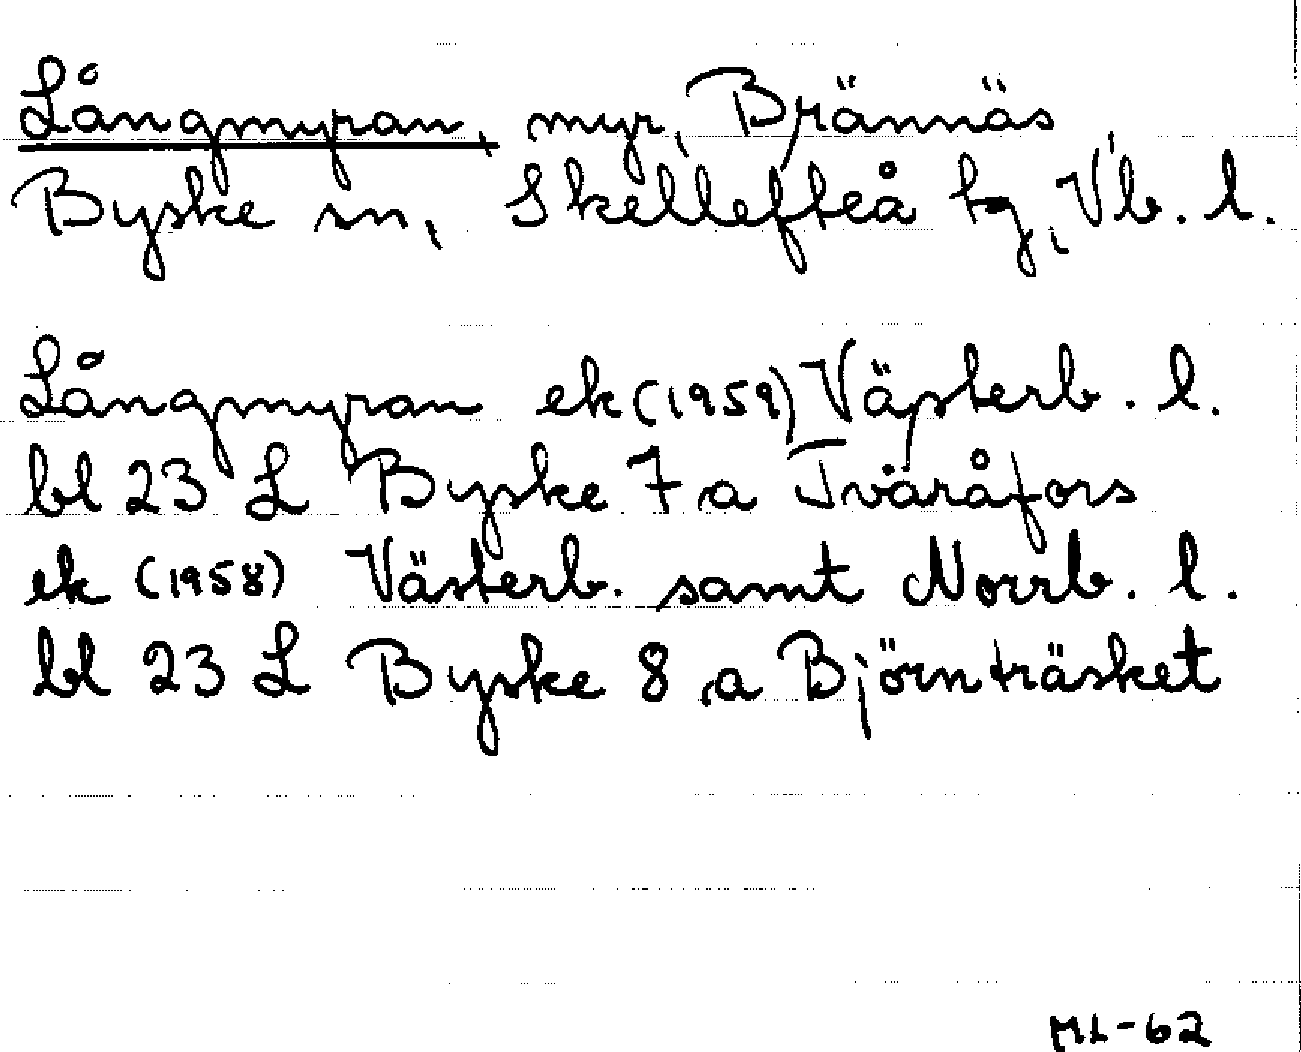 Långmyran, myr, Brännäs,
Byske sn, Skellefteå tg, Vb. l.
Långmyran ek (1959) Västerb. l.
bl 23 L Byske 7 a Tvåråfors
ek (1958) Västerb. samt Norrb. l.
bl 23 L Byske 8 a Björnträsket
ML-62